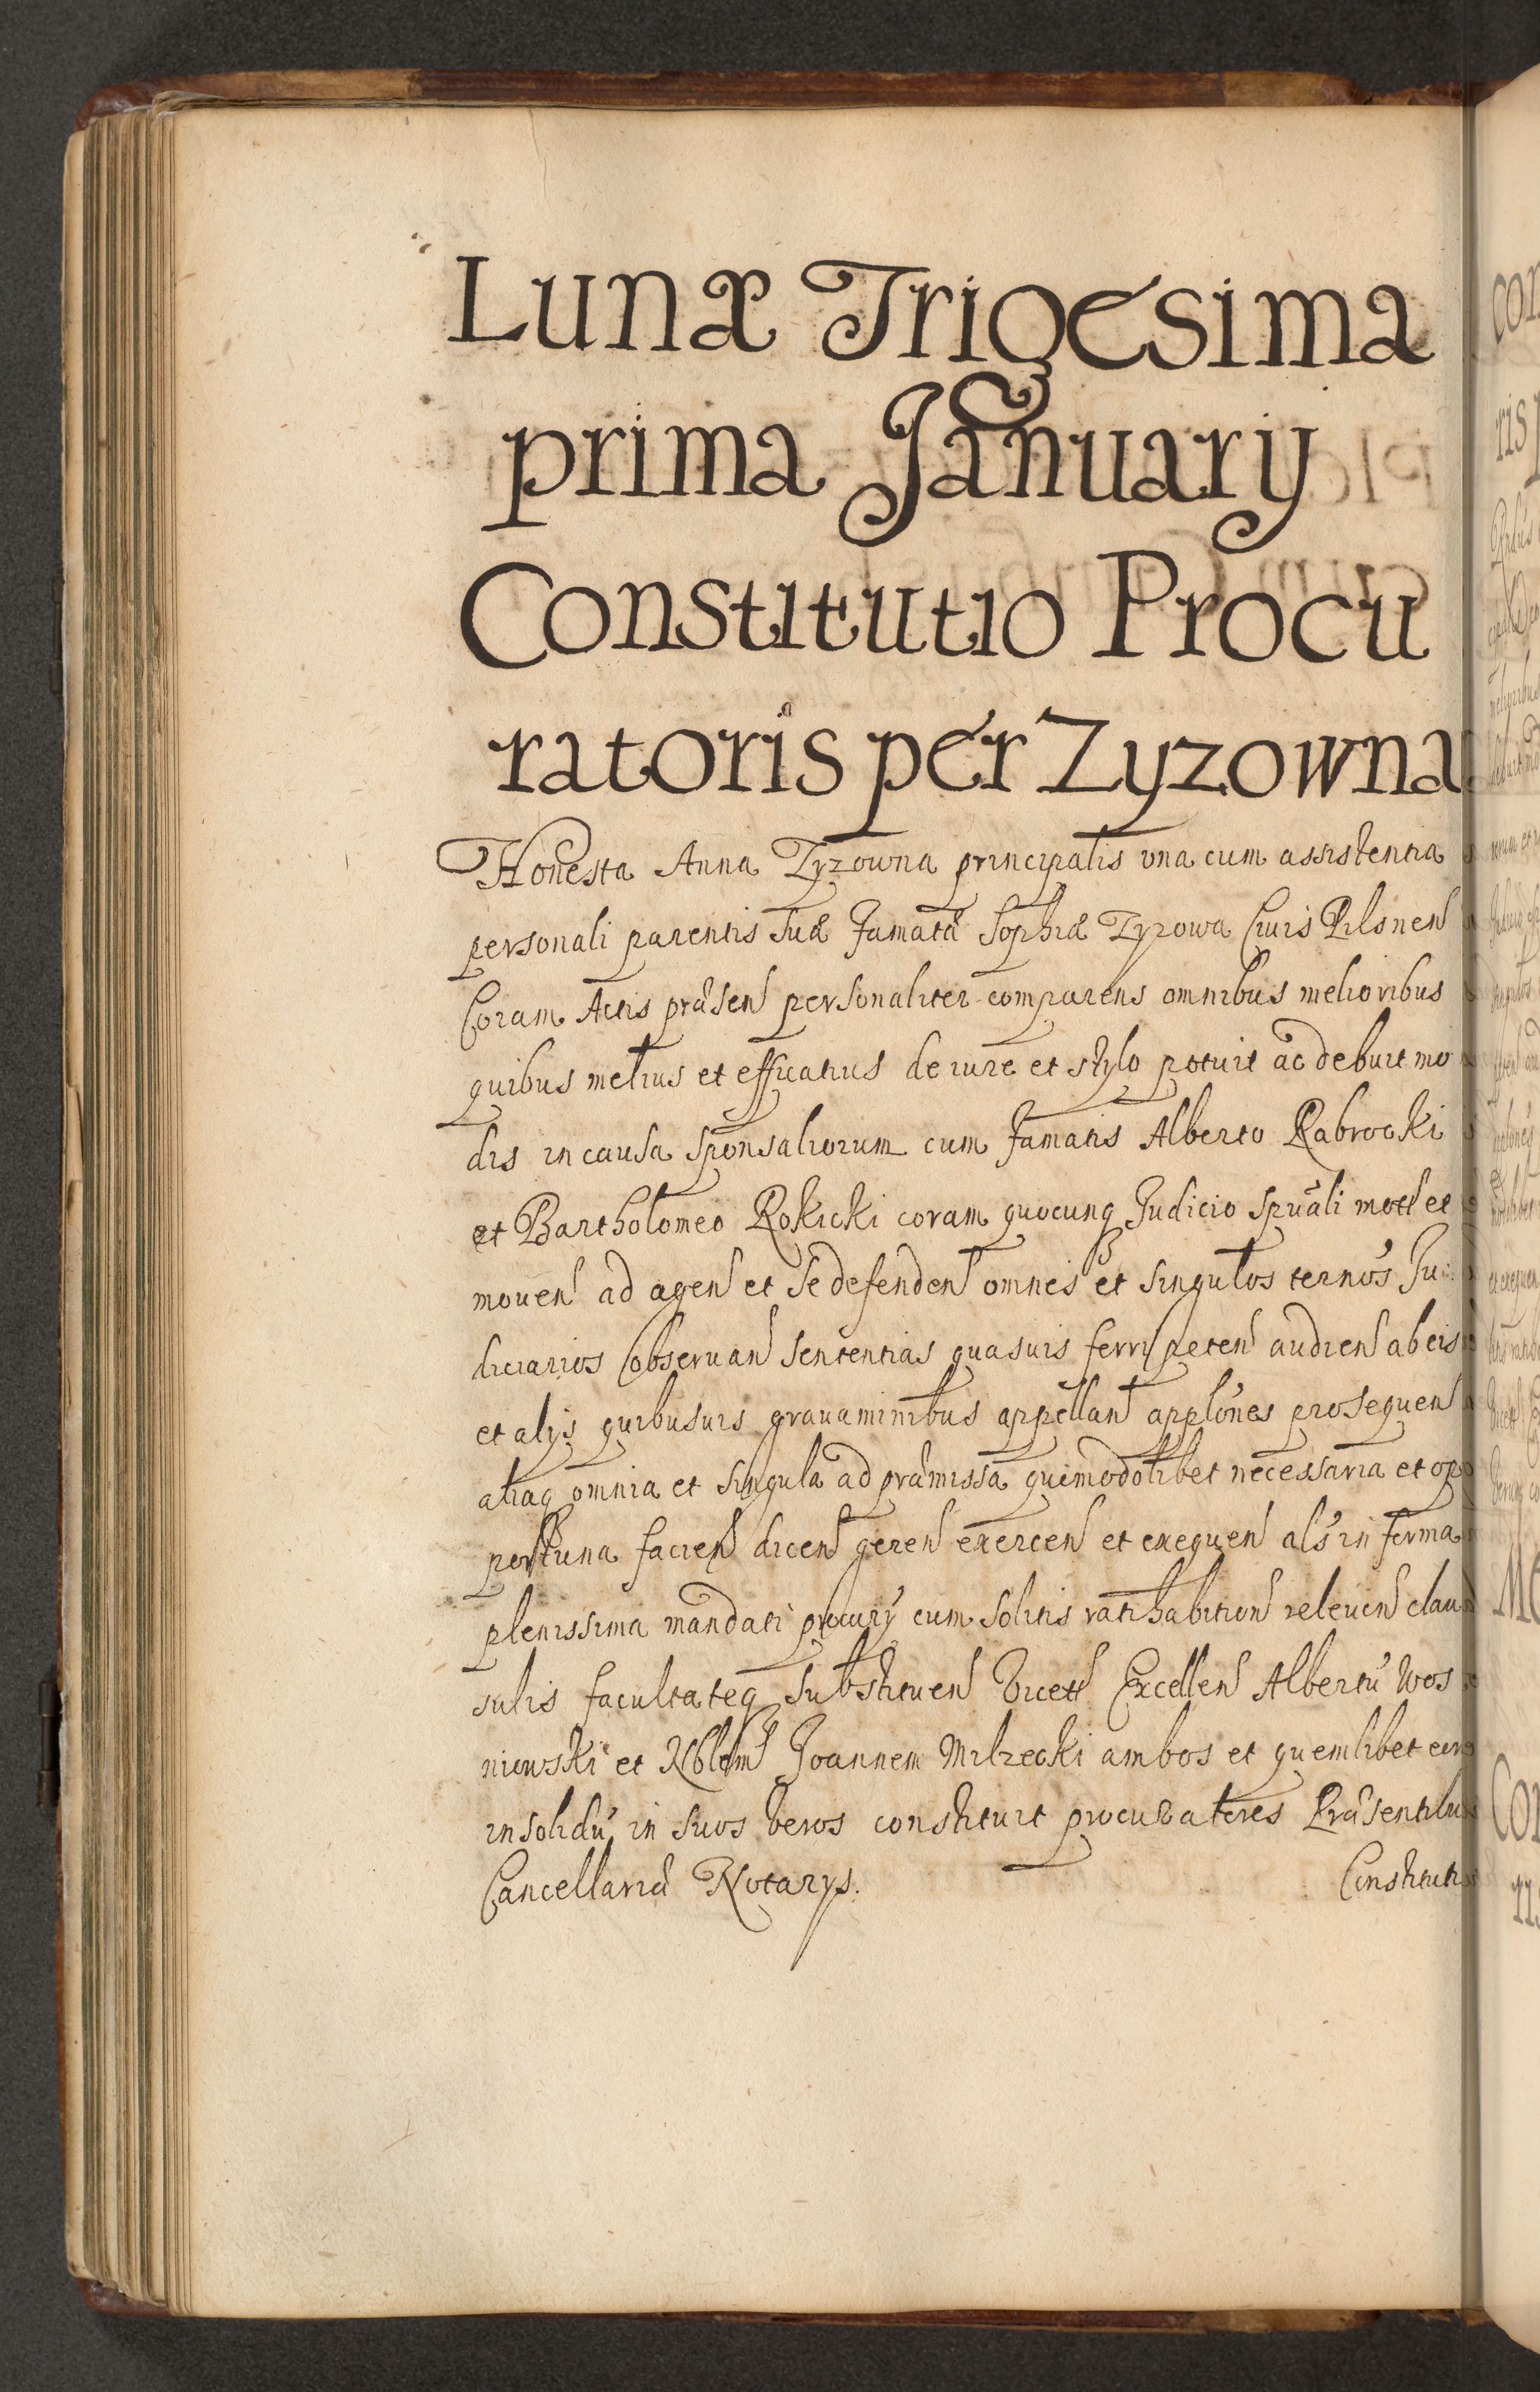 Lunæ Trigesima
prima January
Constitutio Procu
ratoris per Zyzowna
Honesta Anna Zyzowna principalis vna cum assistentia
personali parentis suæ famatæ Sophiæ Zyzowa Ciuis Pilsnen
Coram Actis præsen personaliter comparens omnibus melioribus
quibus melius et efficatius de iure et stylo potuit ac debuit mo
dis in causa sponsaliorum cum famatis Alberto Rabrocki
et Bartholomeo Rokicki coram quocunq Judicio spuali mott et
mouen ad agen et se defenden omnes et singulos ternos Ju
diciarios obseruan sententias quasuis ferri peten audien ab eis
et alijs quibusuis grauaminibus appellan applones prosequen
aliaq omnia et singula ad præmissa quemodolibet necessaria et op
portuna facien dicen geren exercen et exequen als in forma
plenissima mandati procury cum solitis ratihabition releuen clau
sulis facultateq substituen Excellen Albertu Wos
niowski et Nobilem Joannem Milzecki ambos et quemlibet eor
insolidu in suos veros constituit procuratores Præsentibus
Cancellariæ Notarys. Constituti